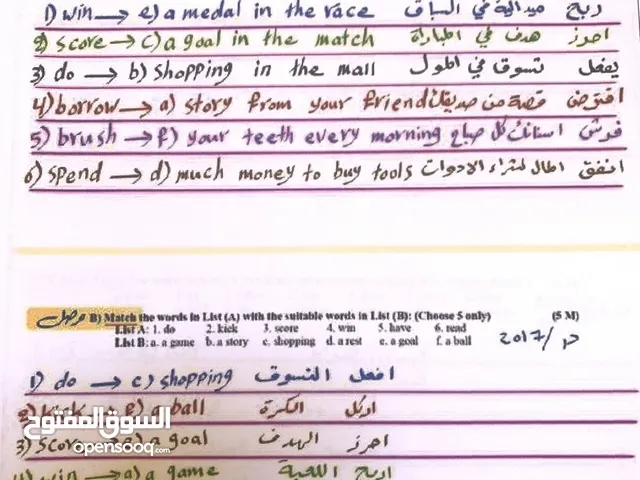 1) win → e) a medal in the race ربح ميدالية في السباق
2) score → c) a goal in the match احرز هدف في المباراة
3) do → b) shopping in the mall يفعل تسوق في المول
4) borrow → a) story from your friend اقترض قصة من صديقك
5) brush → f) your teeth every morning فرش اسنانك كل صباح
6) spend → d) much money to buy tools انفق المال لشراء الادوات
وصل B) Match the words in List (A) with the suitable words in List (B): (Choose 5 only) (5 M)
List A: 1. do 2. kick 3. score 4. win 5. have 6. read
List B: a. a game b. a story c. shopping d. a rest e. a goal f. a ball 2017/
1) do → c) shopping افعل التسوق
2) kick f) a ball اركل الكرة
3) score → e) a goal احرز الهدف
4) win → a) a game اربح اللعبة
السوق المفتوح
opensooq.com